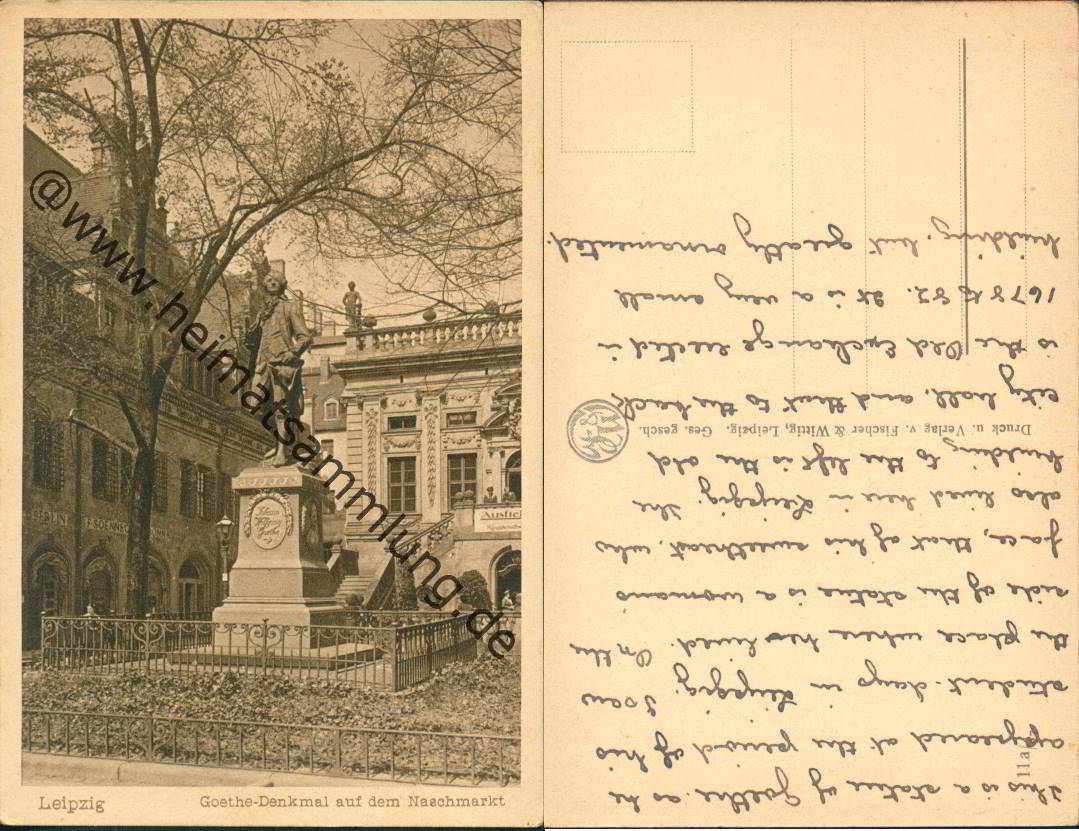 @www.heimatsammlung.de
BERLIN F. SOENNECKEN
Johann
Wolfgang
Goethe
Leipzig
Goethe-Denkmal auf dem Naschmarkt
This is a statue of Goethe as he
appeared at the period of his
student-days in Leipzig. I saw
the place where he lived. On the
side of the statue is a womans
face, that of his sweetheart, who
also lived here in Leipzig. The
building to the left is the old
city hall, and that to the back
is the Old Exchange erected in
1678 to 82. It is a very small
building, but greatly ornamented.
Druck u. Verlag v. Fischer & Wittig, Leipzig. Ges. gesch.
11a